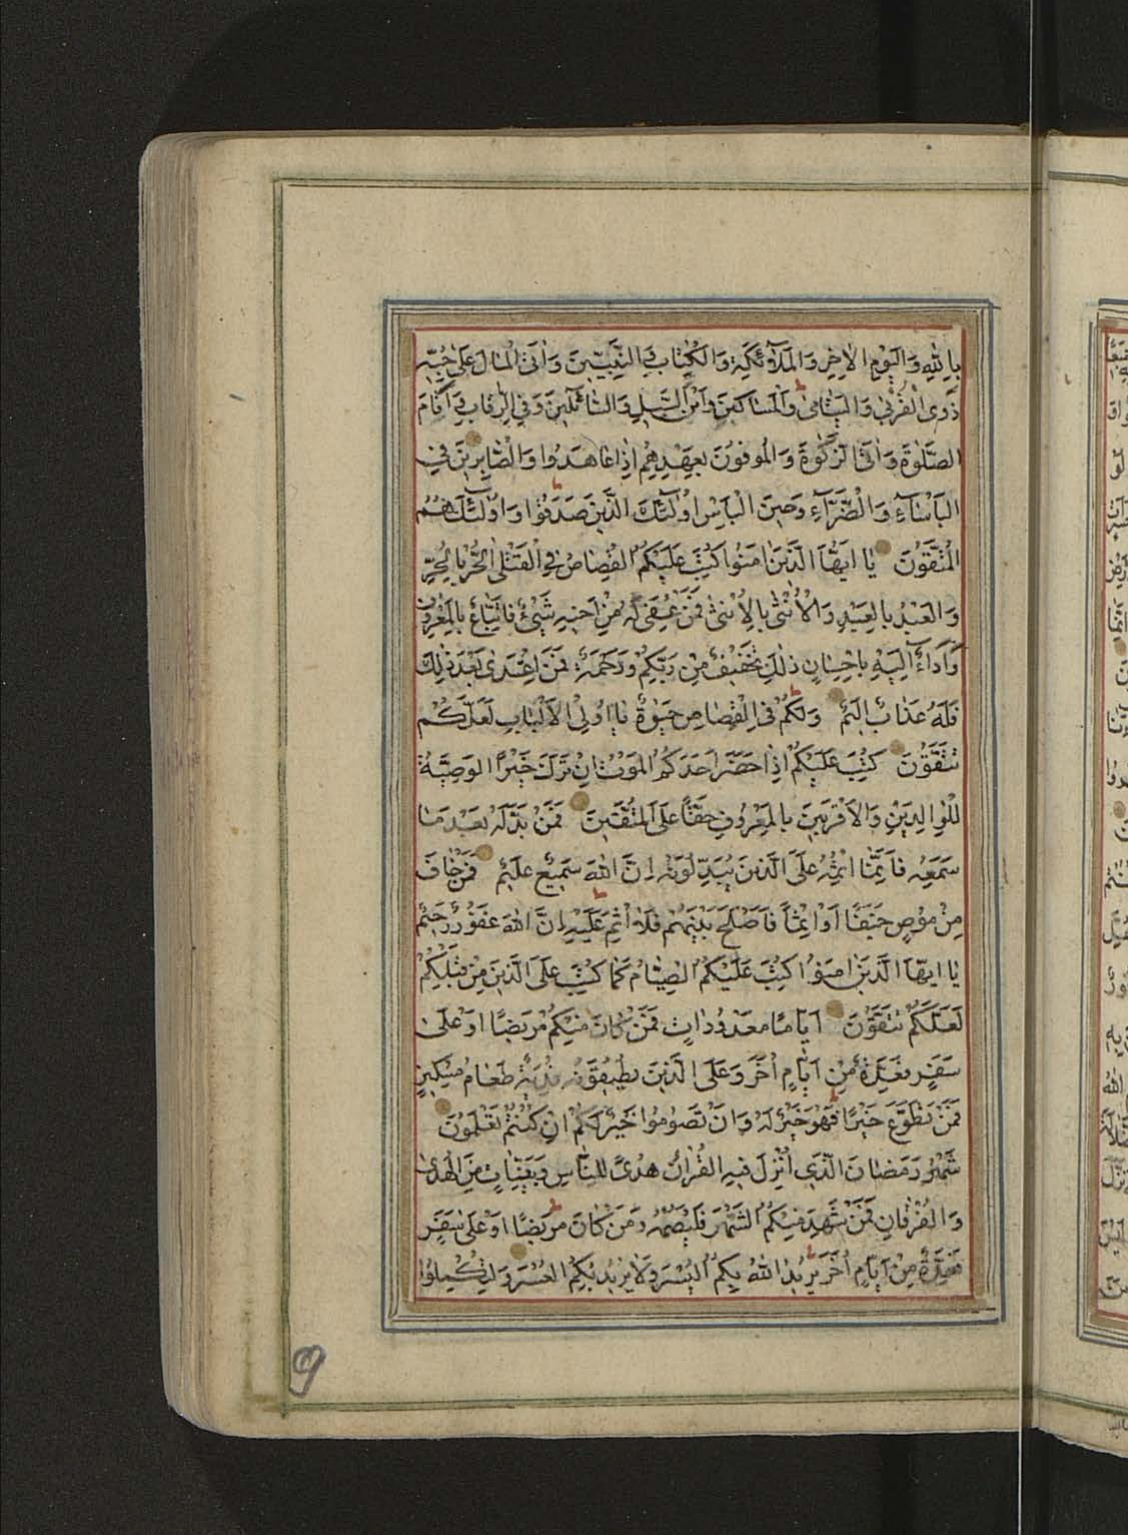 بِاللّٰهِ وَالْيَوْمِ الْاٰخِرِ وَالْمَلٰٓئِكَةِ وَالْكِتٰابِ وَالنَّبِيّٖينَ وَاٰتَى الْمٰالَ عَلٰى حُبِّهٖ
ذَوِى الْقُرْبٰى وَالْيَتٰامٰى وَالْمَسٰاكٖينَ وَابْنَ السَّبٖيلِ وَالسّٰٓائِلٖينَ وَفِى الرِّقٰابِ وَاَقٰامَ
الصَّلٰوةَ وَاٰتَى الزَّكٰوةَ وَالْمُوفُونَ بِعَهْدِهِمْ اِذٰا عٰاهَدُوا وَالصّٰابِرٖينَ فِى
الْبَاْسٰآءِ وَالضَّرّٰآءِ وَحٖينَ الْبَاْسِ اُولٰٓئِكَ الَّذٖينَ صَدَقُوا وَاُولٰٓئِكَ هُمُ
الْمُتَّقُونَ يٰٓا اَيُّهَا الَّذٖينَ اٰمَنُوا كُتِبَ عَلَيْكُمُ الْقِصٰاصُ فِى الْقَتْلٰى اَلْحُرُّ بِالْحُرِّ
وَالْعَبْدُ بِالْعَبْدِ وَالْاُنْثٰى بِالْاُنْثٰى فَمَنْ عُفِىَ لَهُ مِنْ اَخٖيهِ شَىْءٌ فَاتِّبٰاعٌ بِالْمَعْرُوفِ
وَاَدٰآءٌ اِلَيْهِ بِاِحْسٰانٍ ذٰلِكَ تَخْفٖيفٌ مِنْ رَبِّكُمْ وَرَحْمَةٌ فَمَنِ اعْتَدٰى بَعْدَ ذٰلِكَ
فَلَهُ عَذٰابٌ اَلٖيمٌ وَلَكُمْ فِى الْقِصٰاصِ حَيٰوةٌ يٰٓا اُولِى الْاَلْبٰابِ لَعَلَّكُمْ
تَتَّقُونَ كُتِبَ عَلَيْكُمْ اِذٰا حَضَرَ اَحَدَكُمُ الْمَوْتُ اِنْ تَرَكَ خَيْرًا الْوَصِيَّةُ
لِلْوٰالِدَيْنِ وَالْاَقْرَبٖينَ بِالْمَعْرُوفِ حَقًّا عَلَى الْمُتَّقٖينَ فَمَنْ بَدَّلَهُ بَعْدَ مٰا
سَمِعَهُ فَاِنَّمٰا اِثْمُهُ عَلَى الَّذٖينَ يُبَدِّلُونَهُ اِنَّ اللّٰهَ سَمٖيعٌ عَلٖيمٌ فَمَنْ خٰافَ
مِنْ مُوصٍ جَنَفًا اَوْ اِثْمًا فَاَصْلَحَ بَيْنَهُمْ فَلٰٓا اِثْمَ عَلَيْهِ اِنَّ اللّٰهَ غَفُورٌ رَحٖيمٌ
يٰٓا اَيُّهَا الَّذٖينَ اٰمَنُوا كُتِبَ عَلَيْكُمُ الصِّيٰامُ كَمٰا كُتِبَ عَلَى الَّذٖينَ مِنْ قَبْلِكُمْ
لَعَلَّكُمْ تَتَّقُونَ اَيّٰامًا مَعْدُودٰاتٍ فَمَنْ كٰانَ مِنْكُمْ مَرٖيضًا اَوْ عَلٰى
سَفَرٍ فَعِدَّةٌ مِنْ اَيّٰامٍ اُخَرَ وَعَلَى الَّذٖينَ يُطٖيقُونَهُ فِدْيَةٌ طَعٰامُ مِسْكٖينٍ
فَمَنْ تَطَوَّعَ خَيْرًا فَهُوَ خَيْرٌ لَهُ وَاَنْ تَصُومُوا خَيْرٌ لَكُمْ اِنْ كُنْتُمْ تَعْلَمُونَ
شَهْرُ رَمَضٰانَ الَّذٖى اُنْزِلَ فٖيهِ الْقُرْاٰنُ هُدًى لِلنّٰاسِ وَبَيِّنٰاتٍ مِنَ الْهُدٰى
وَالْفُرْقٰانِ فَمَنْ شَهِدَ مِنْكُمُ الشَّهْرَ فَلْيَصُمْهُ وَمَنْ كٰانَ مَرٖيضًا اَوْ عَلٰى سَفَرٍ
فَعِدَّةٌ مِنْ اَيّٰامٍ اُخَرَ يُرٖيدُ اللّٰهُ بِكُمُ الْيُسْرَ وَلٰا يُرٖيدُ بِكُمُ الْعُسْرَ وَلِتُكْمِلُوا
9